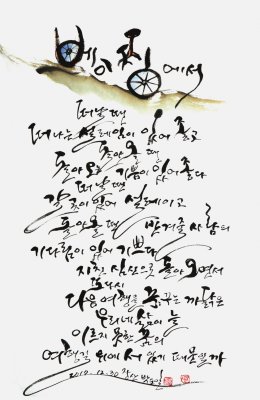 베이징에서
떠날 땐
떠나는 설레임이 있어 좋고
돌아올 땐
돌아오는 기쁨이 있어 좋다
떠날 땐
갈 곳이 있어 설레이고
돌아올 땐 반겨줄 사람의
기다림이 있어 기쁘다
지친 심신으로 돌아오면서
또다시
다음 여행을 꿈꾸는 까닭은
우리네 삶이 늘
이르지 못한 꿈의
여행길 위에 서 있기 때문일까
2012.12.30